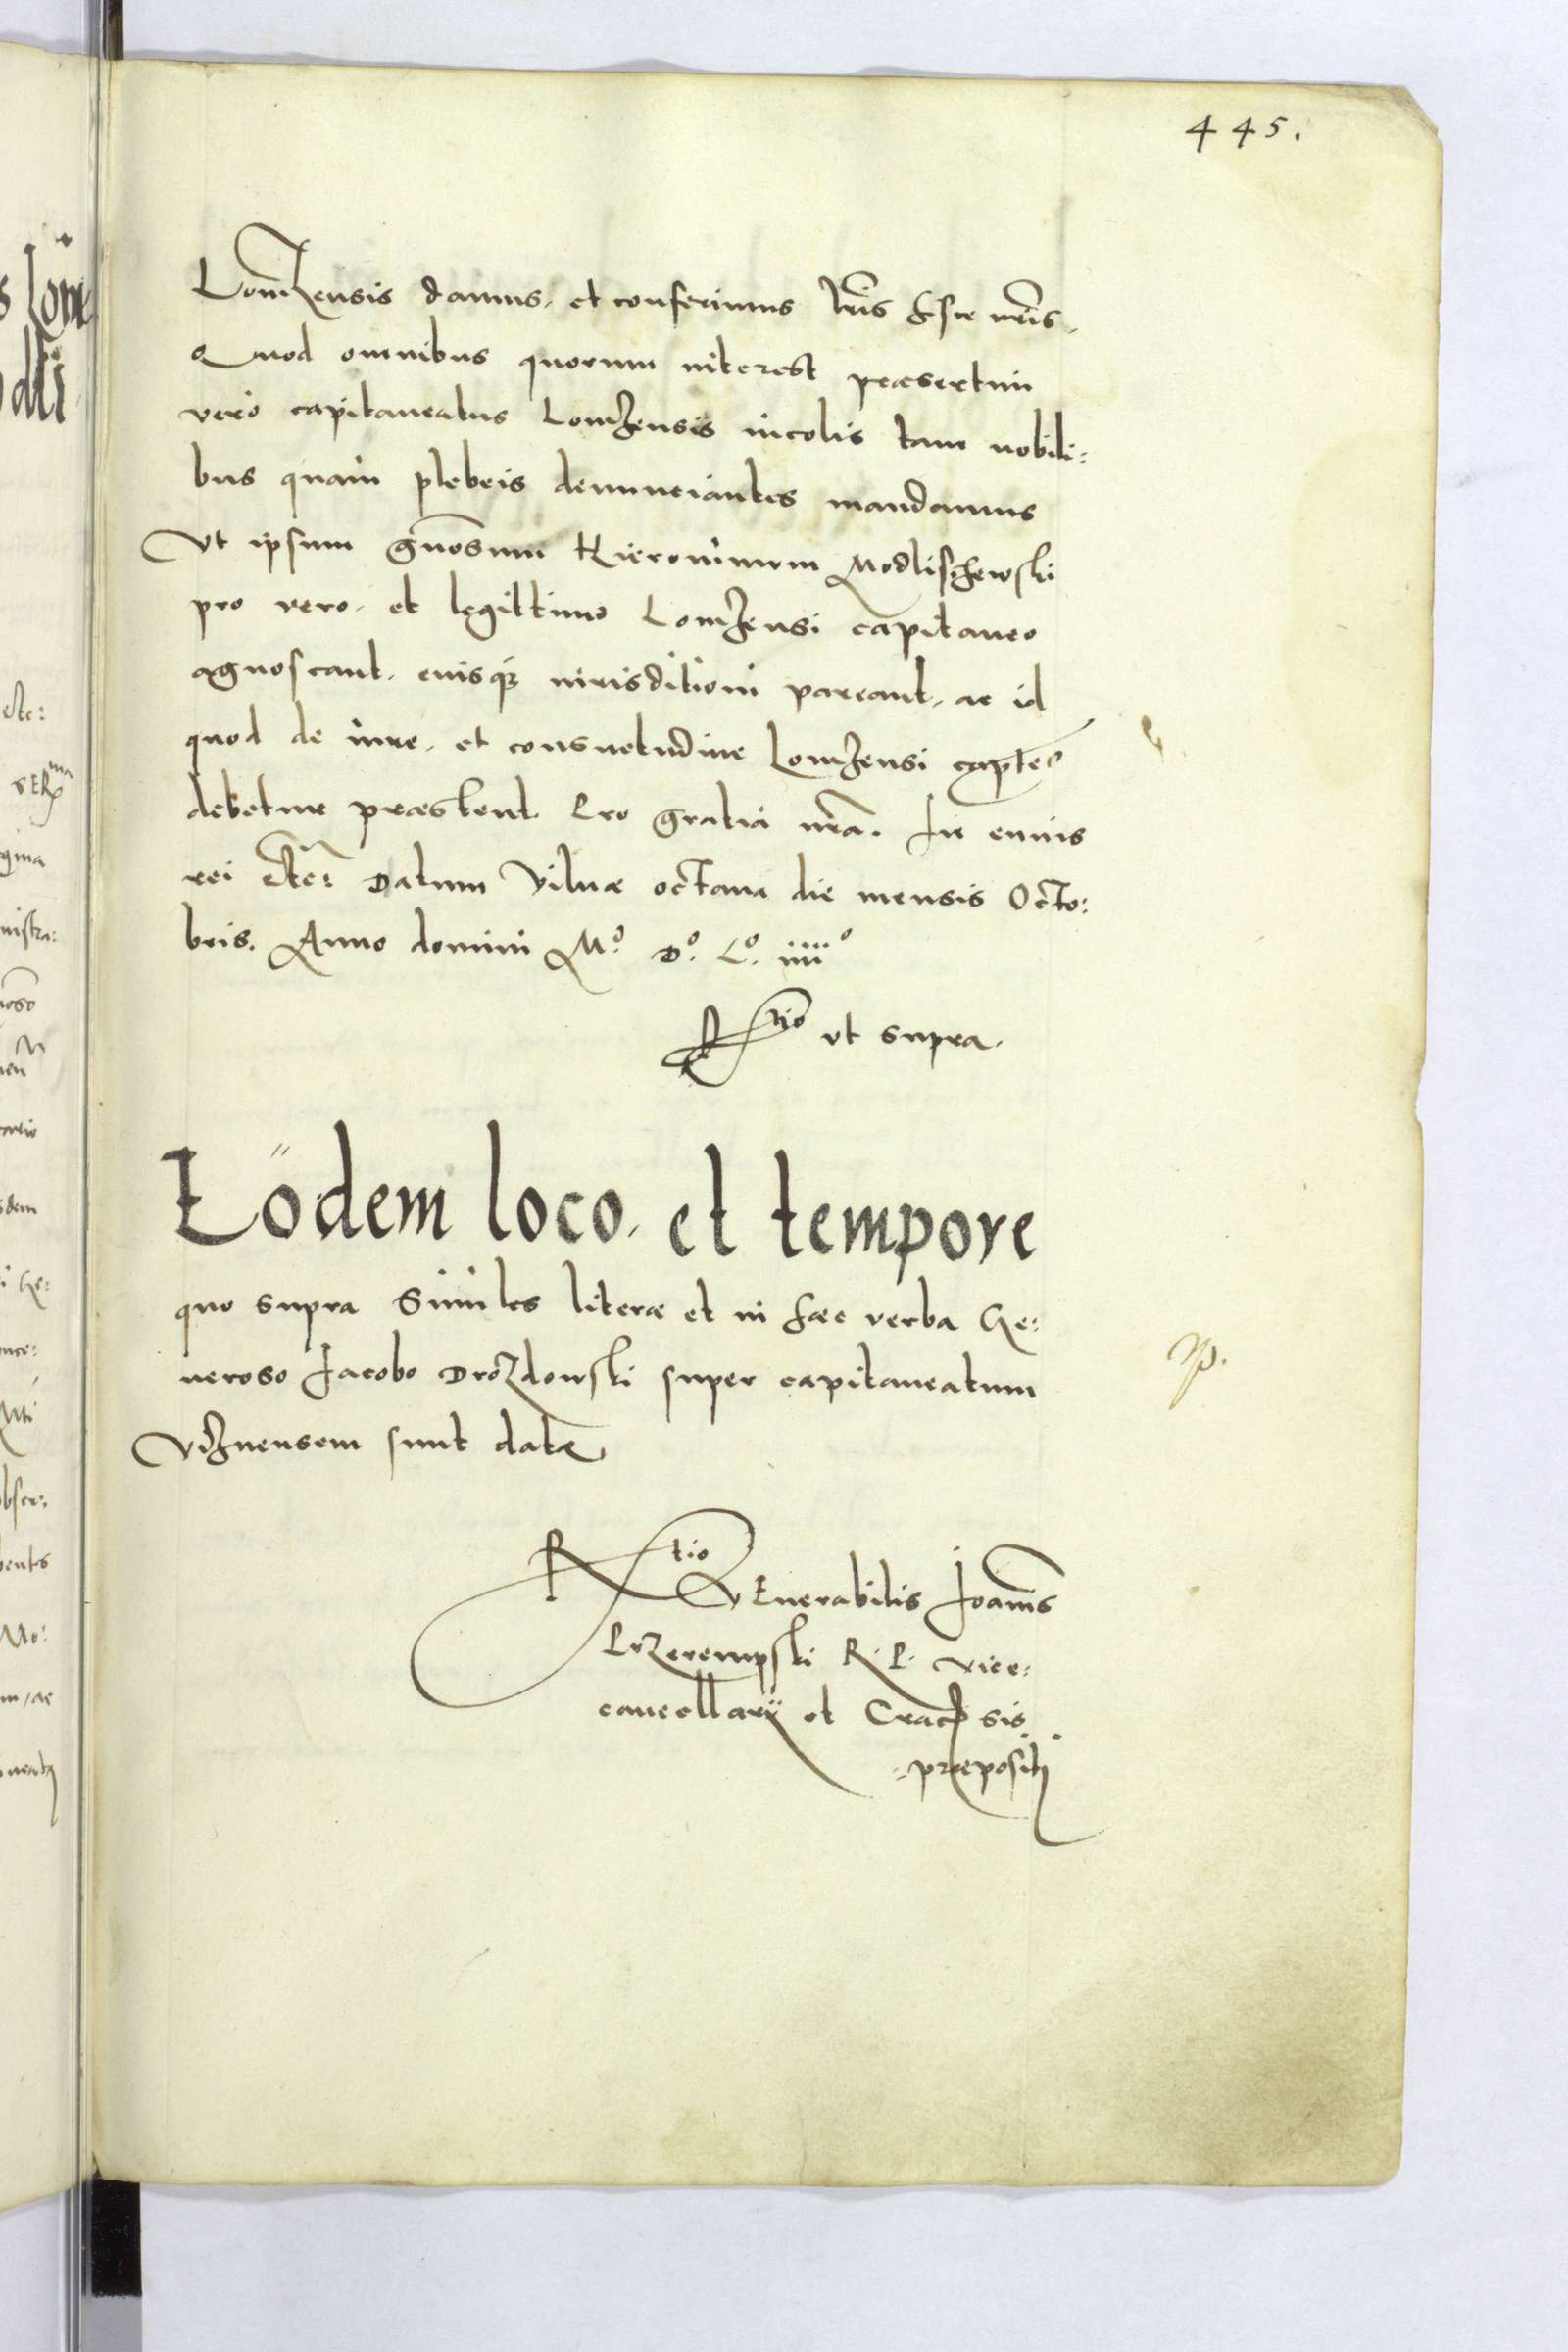 445.
Lomzensis damus, et conferimus lr̃is hsce nr̃is,
Quod omnibus quorum interest præsertim
vero capitaneatus Lomzensis incolis tam nobili:
bus quam plebeis denunciantes mandamus
Vt ipsum gn̄osum Hieronimum Modlischewski
pro vero, et legittimo Lomzensi capitaneo
agnoscant, euisq3 iurisditioni pareant, ac id
quod de iure, et consuetudine Lomzensi capteo
debetur præstent Pro gratia nr̃a. In cuius
rei etc: Datum Vilnæ octaua die mensis Octo:
bris. Anno domini Mº. Dº. Lº. iiiiº
Rtio vt supra.
Eodem loco, et tempore
quo supra Similes literæ et in hæc verba Ge:
neroso Jacobo Drozdowski super capitaneatum
Viznensem sunt datæ
Rtio VEnerabilis Joannis
Przerempski R. P. Vice:
cancellarij et Crac̄sis
præpositj